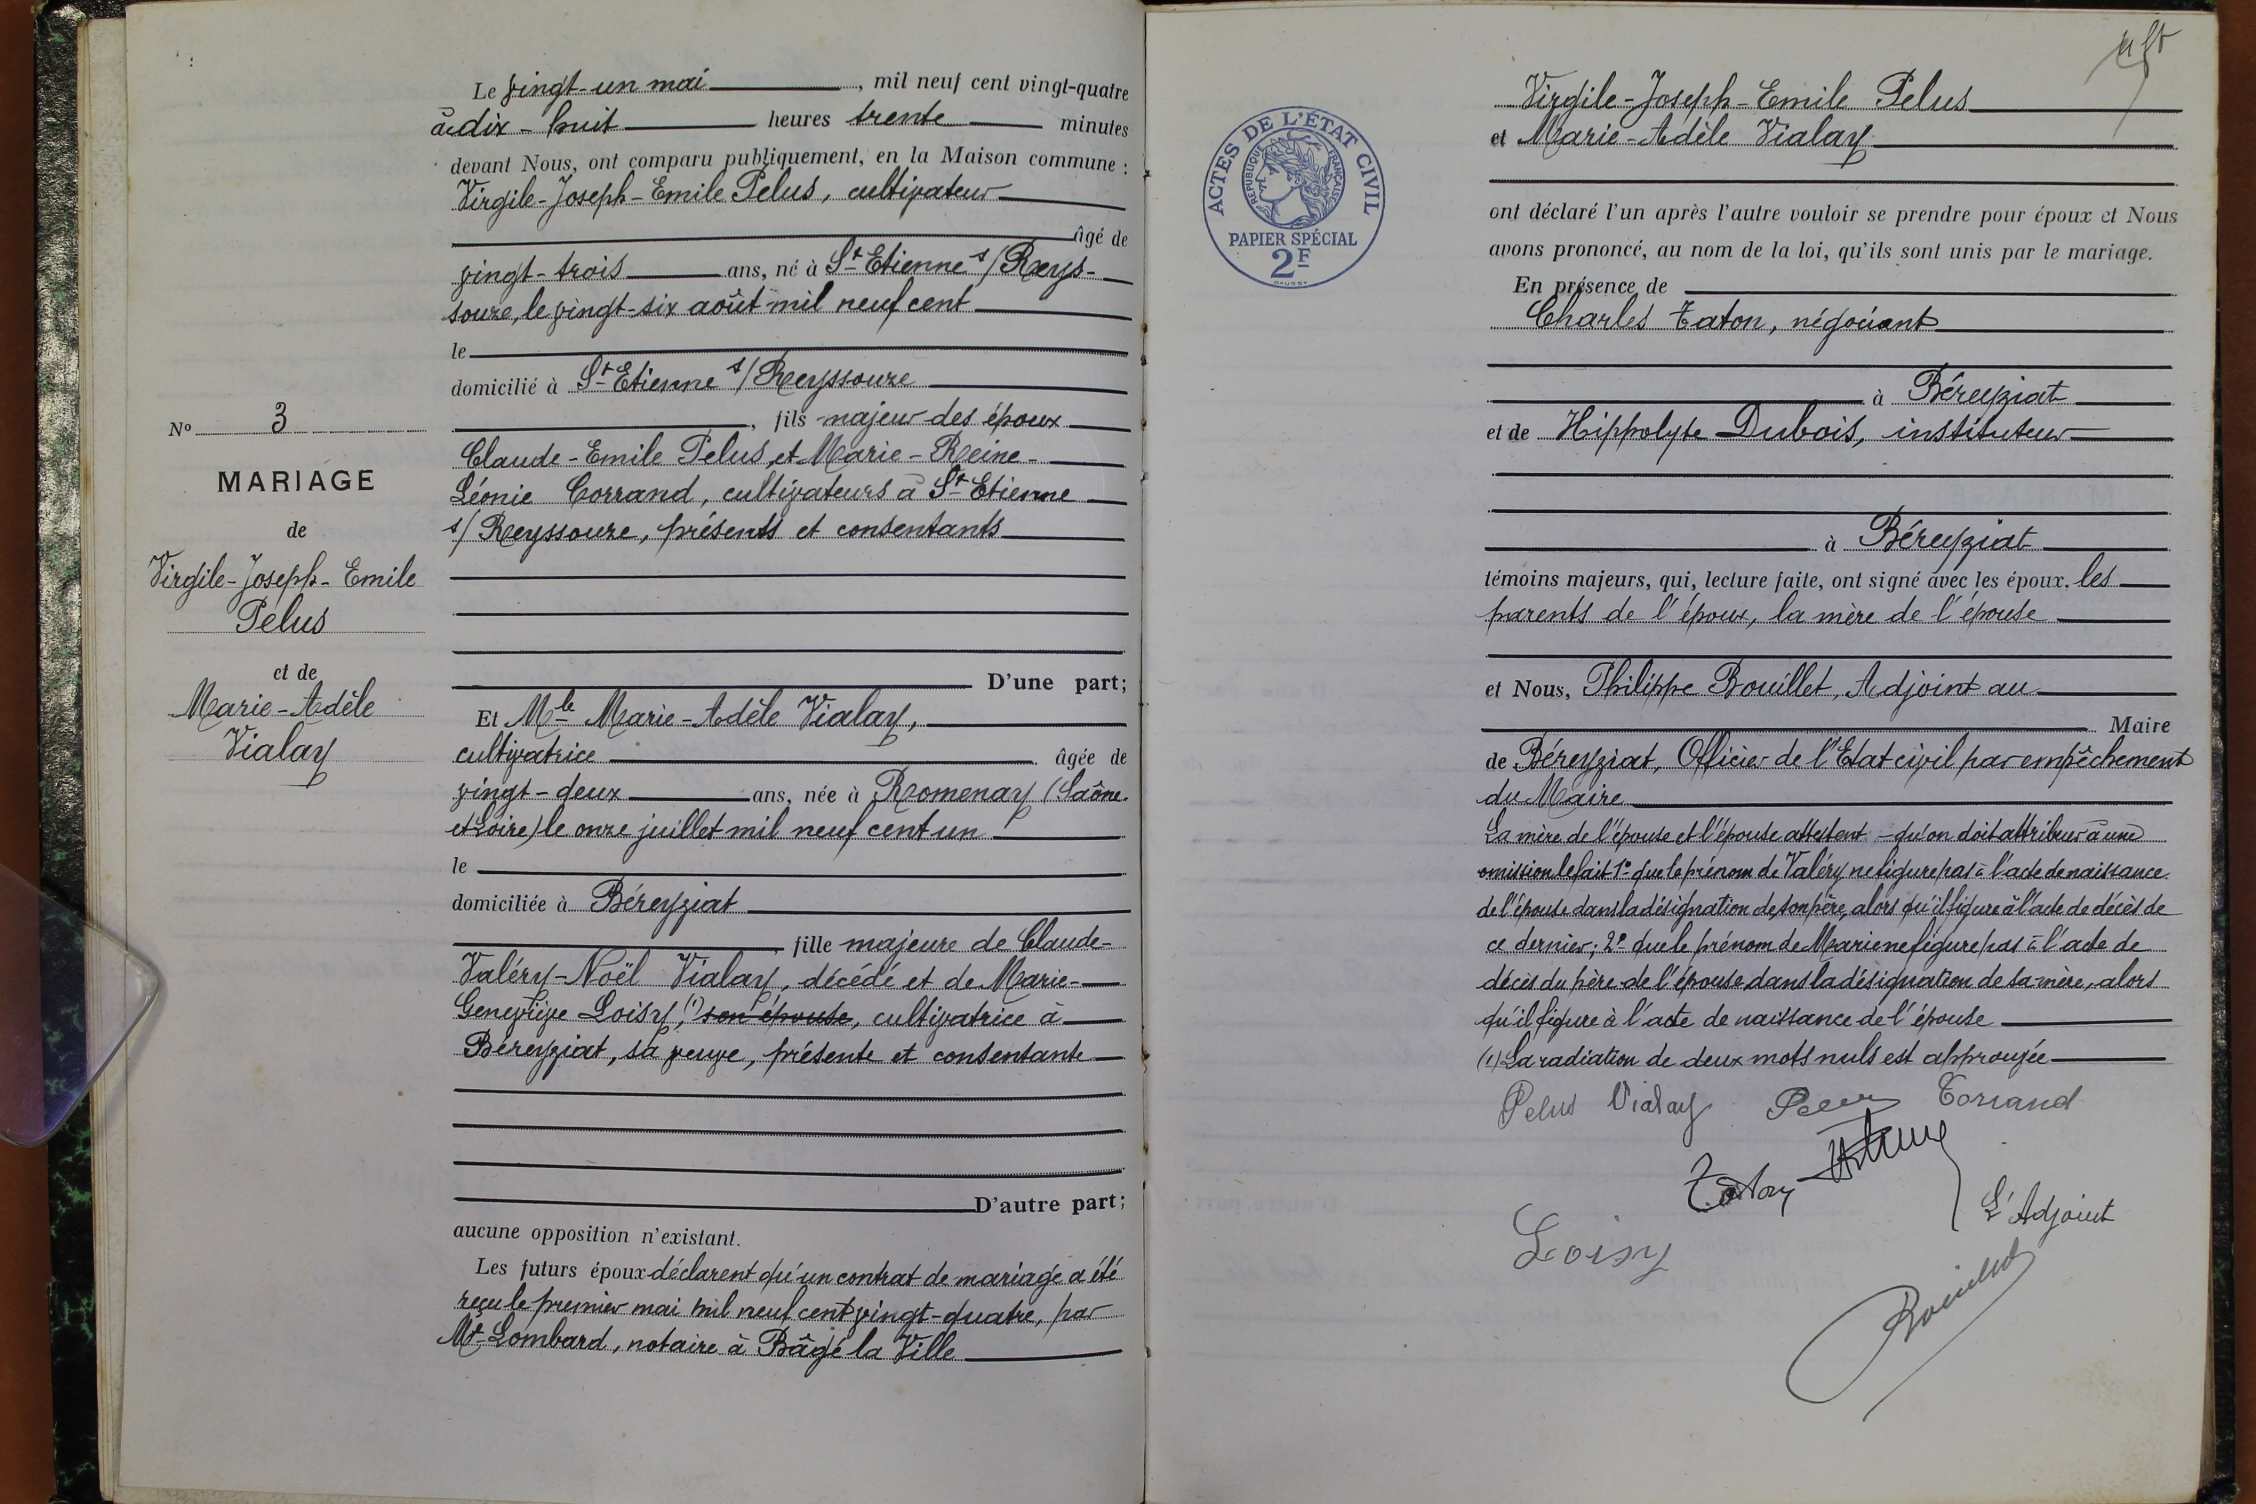 Le vingt-un mai, mil neuf cent vingt-quatre
à dix-huit heures trente minutes
devant Nous, ont comparu publiquement, en la Maison commune :
Virgile-Joseph-Emile Pelus, cultivateur
âgé de
vingt-trois ans, né à St Etienne s/Reys-
souze, le vingt-six août mil neuf cent
le
domicilié à St Etienne s/Reyssouze
, fils majeur des époux
Claude-Emile Pelus, et Marie-Reine-
Léonie Corrand, cultivateurs à St Etienne
s/Reyssouze, présents et consentants
D'une part;
Et Mle Marie-Adèle Vialay,
cultivatrice âgée de
vingt-deux ans, née à Romenay (Saône-
et Loire) le onze juillet mil neuf cent un
le
domiciliée à Béreyziat
, fille majeure de Claude-
Valéry-Noël Vialay, décédé et de Marie-
Geneviève Loisy, (1) son épouse, cultivatrice à
Béreyziat, sa veuve, présente et consentante
D'autre part;
aucune opposition n'existant.
Les futurs époux déclarent qu'un contrat de mariage a été
reçu le premier mai mil neuf cent vingt-quatre, par
Me Lombard, notaire à Bâgé la Ville
No 3
MARIAGE
de
Virgile-Joseph-Emile
Pelus
et de
Marie-Adèle
Vialay
ACTES DE L'ÉTAT CIVIL
RÉPUBLIQUE FRANÇAISE
PAPIER SPÉCIAL
2F
Virgile-Joseph-Emile Pelus
et Marie-Adèle Vialay
ont déclaré l'un après l'autre vouloir se prendre pour époux et Nous
avons prononcé, au nom de la loi, qu'ils sont unis par le mariage.
En présence de
Charles Taton, négociant
à Béreyziat
et de Hippolyte Dubois, instituteur
à Béreyziat
témoins majeurs, qui, lecture faite, ont signé avec les époux, les
parents de l'époux, la mère de l'épouse
et Nous, Philippe Bouillet, Adjoint au
Maire
de Béreyziat, Officier de l'Etat civil par empêchement
du Maire
La mère de l'épouse et l'épouse attestent qu'on doit attribuer à une
omission le fait 1° que le prénom de Valéry ne figure pas à l'acte de naissance
de l'épouse dans la désignation de son père, alors qu'il figure à l'acte de décès de
ce dernier; 2° que le prénom de Marie ne figure pas à l'acte de
décès du père de l'épouse dans la désignation de sa mère, alors
qu'il figure à l'acte de naissance de l'épouse
(1) La radiation de deux mots nuls est approuvée
Pelus Vialay Pelus Corrand
Taton
Loisy
L'Adjoint
Bouillet